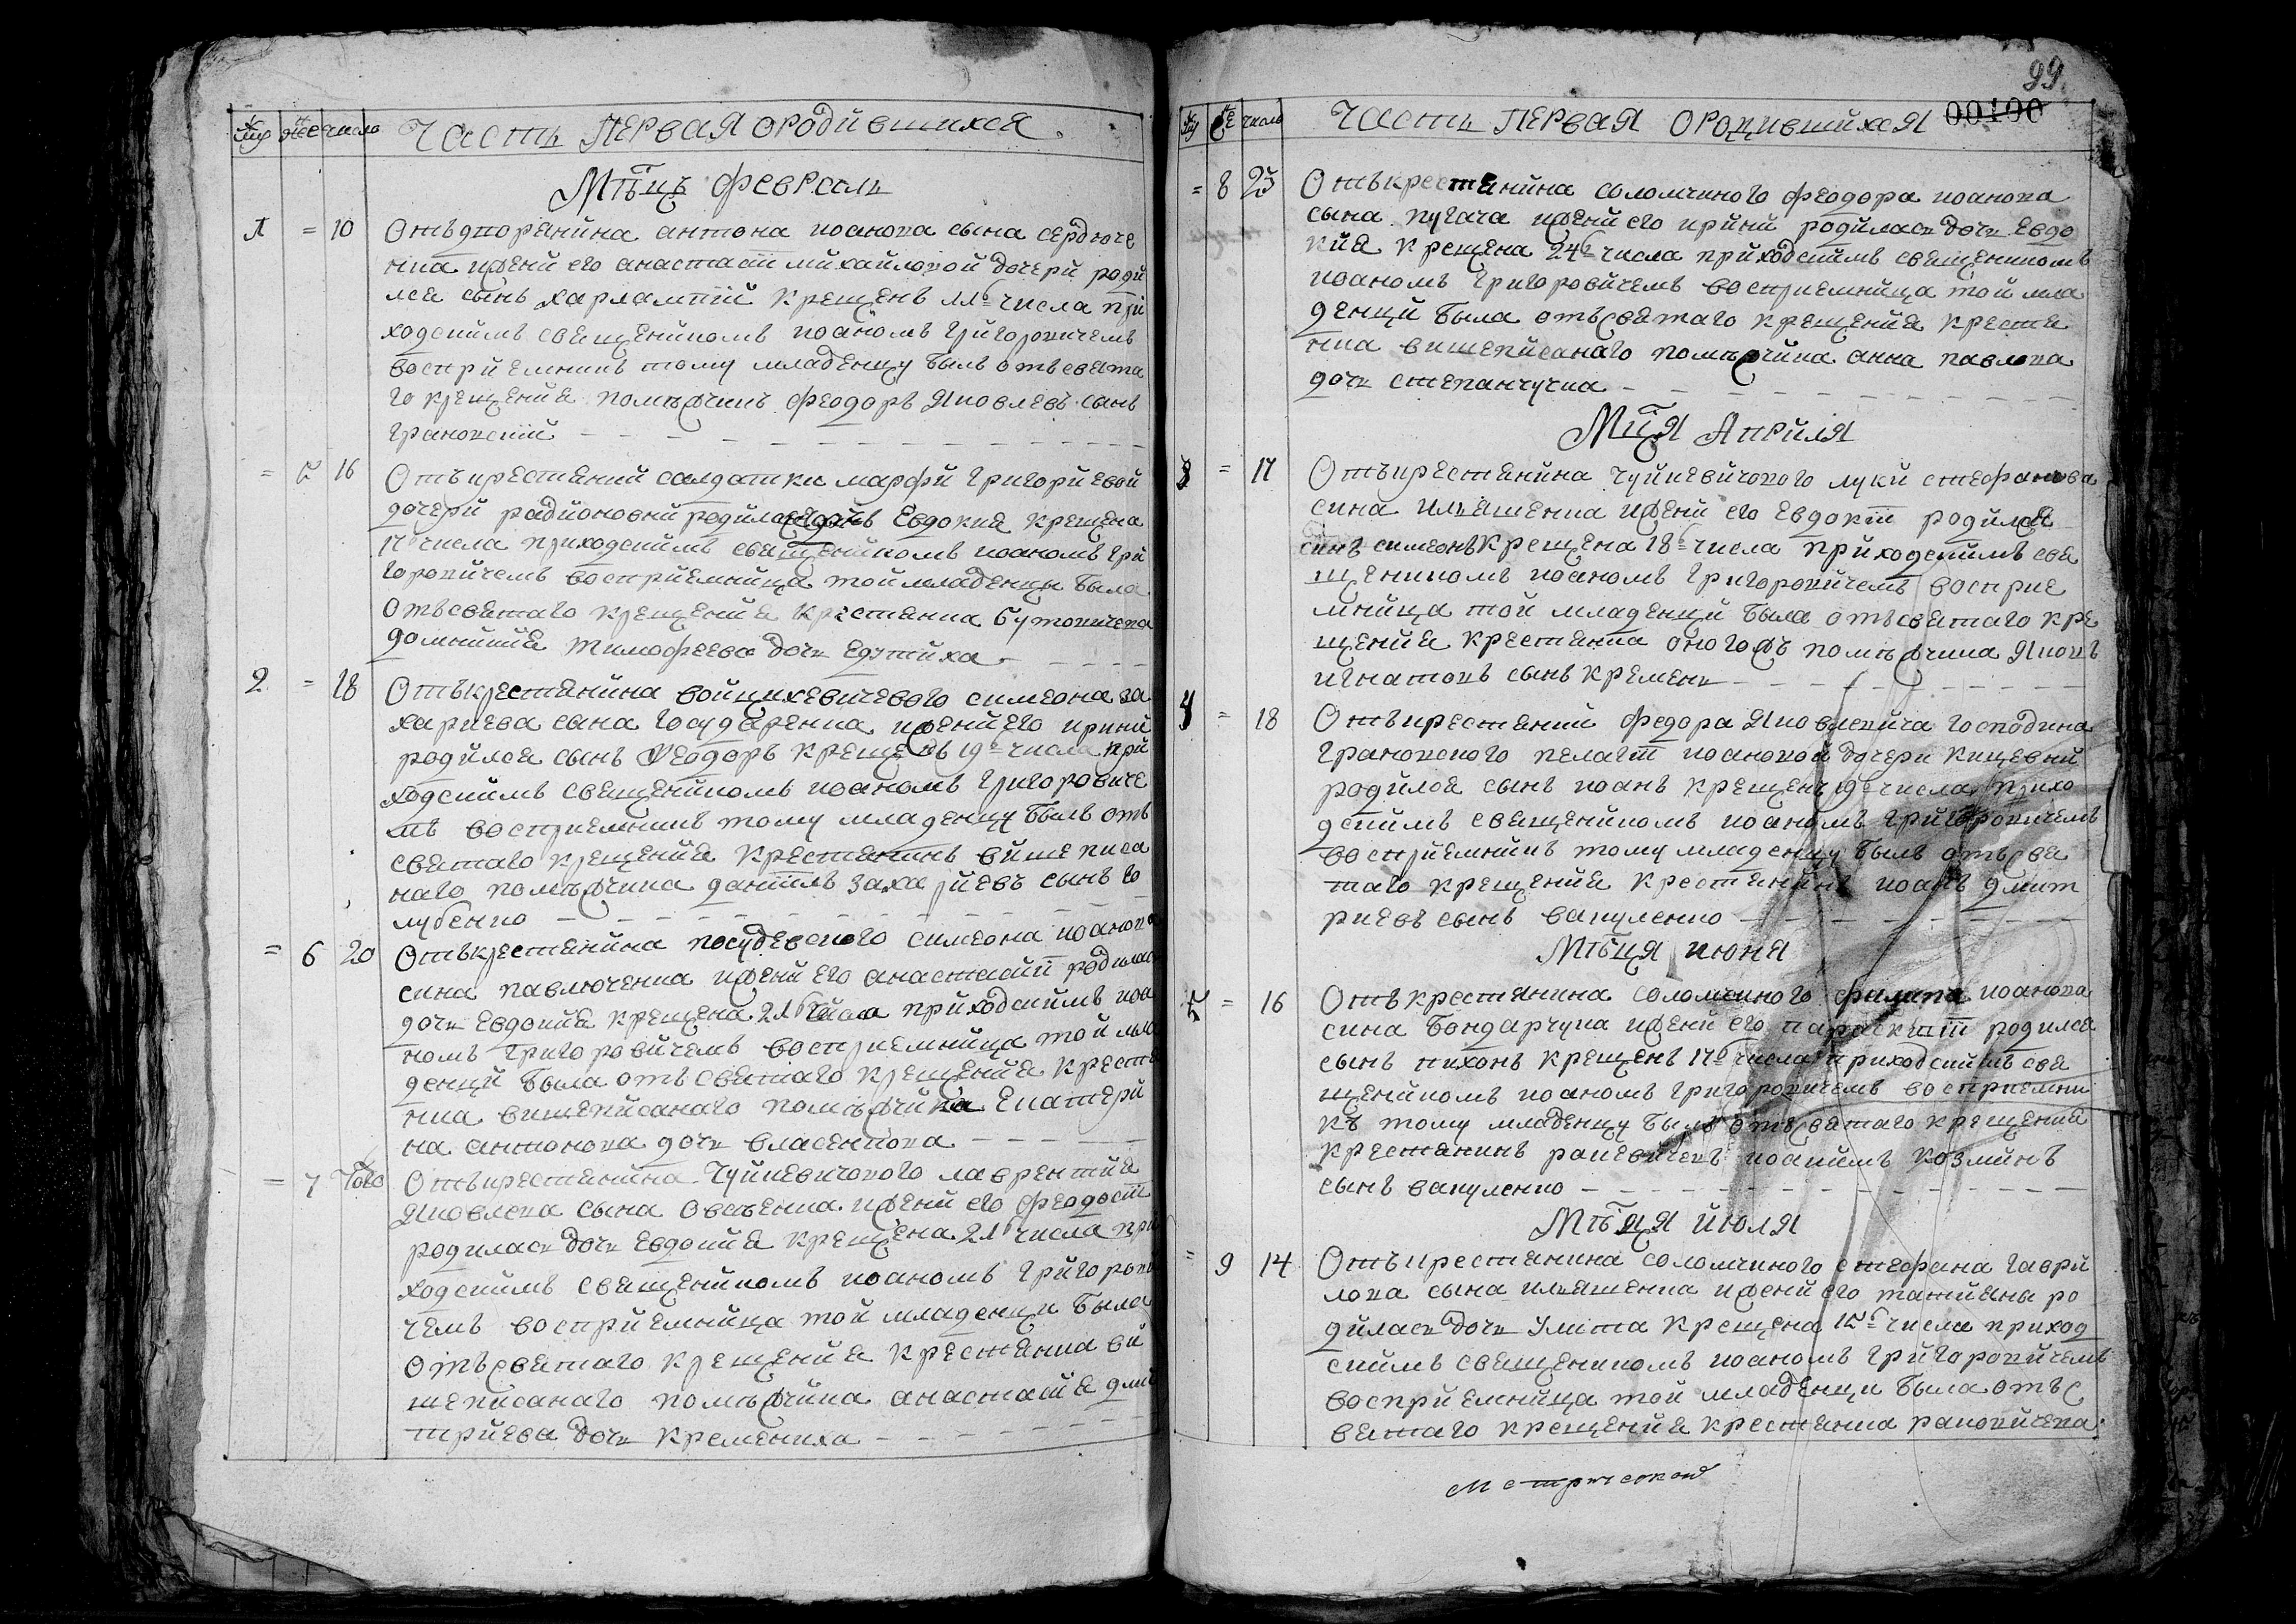 муж жен число Часть первая о родившихся
Мѣсць февраль
1 = 10 Отъ дворянина антона иоанова сына сердюче
нка и жени его анастасіи михайловой дочери роди
лся сынъ харлампій крещенъ 11го числа при
ходскимъ священикомъ иоаномъ григоровичемъ
восприемникъ тому младенцу былъ отъ свята
го крещения помѣщикъ феодоръ Яковлевъ сынъ
грановскій
= 5 16 Отъ крестянки солдатки марфи григориевой
дочери радионовни родилась дочь Евдокия крещена
17 числа приходскимъ священикомъ иоаномъ гри
горовичемъ восприемница той младенци была
отъ святаго крещения крестянка бутовичева
домникия тимофеева дочь
2 = 18 Отъ крестянина войцихевичевого симеона за
хариева сына государенка и жени его ирини
родился сынъ Феодоръ крещенъ 19го числа при
ходскимъ священикомъ иоаномъ григоровиче
мъ восприемникъ тому младенцу былъ отъ
святаго крещения крестянинъ вишеписа
наго помѣщика даніилъ захариевъ сынъ го
лубенко
= 6 20 Отъ крестянина посудевского симеона иоанова
сина павлюченка и жени его анастасіи родилас
дочь евдокия крещена 21го числа приходскимъ иоа
номъ григоровичемъ восприемница той мла
денци была отъ святаго крещения крестя
нка вишеписанаго помѣщика Екатери
на антонова дочь власенкова
= 7 того Отъ крестянина Чуйкевичового лаврентия
Яковлева сына овсѣенка и жени его феодосіи
родилась дочь евдокия крещена 21го числа при
ходскимъ священикомъ иоаномъ григорови
чемъ восприемница той младенци была
отъ святаго крещения крестянка ви
шеписанаго помѣщика анастасія дми
триева дочь кремениха
99
муж же число Часть первая о родившихся 00100
= 8 23 Отъ крестянина соломчиного феодора иоанова
сына пугача и жени его ирини родилась дочь евдо
кия крещена 24го числа приходскимъ священикомъ
иоаномъ григоровичемъ восприемница той мла
денци была отъ святаго крещения крестя
нка вишеписанаго помѣщика анна павлова
дочь степанчучка
Мця Априля
3 = 17 Отъ крестянина чуйкевичового луки стефанова
сина ильяшенка и жени его евдокіи родился
синъ симеонъ крещена 18го числа приходскимъ свя
щеникомъ иоаномъ григоровичемъ восприе
мница той младенци была отъ святаго кре
щения крестянка оногожъ помѣщика Яковъ
игнатовъ сынъ кремень
4 = 18 Отъ крестянки федора Яковлевича господина
грановского пелагіи иоановой дочери кищевни
родился сынъ иоанъ крещенъ 19го числа прихо
дскимъ священикомъ иоаномъ григоровичемъ
восприемникъ тому младенцу былъ отъ свя
таго крещения крестянинъ иоанъ дмит
риевъ сынъ вакуленко
Мѣсця июня
5 = 16 Отъ крестянина соломчиного филипа иоанова
сина бондарчука и жени его параскевіи родился
сынъ тихонъ крещенъ 17го числа приходскимъ свя
щеникомъ иоаномъ григоровичемъ восприемни
къ тому младенцу былъ отъ святаго крещения
крестянинъ раковичевъ иоакимъ козминъ
сынъ вакуленко
Мѣсця июля
= 9 14 Отъ крестянина соломчиного стефана гаври
лова сына ильяшенка и жени его татияны ро
дилась дочь Улита крещена 15го числа приход
скимъ священикомъ иоаномъ григоровичемъ
восприемница той младенци была отъ с
вятаго крещения крестянка раковичева
Метрической